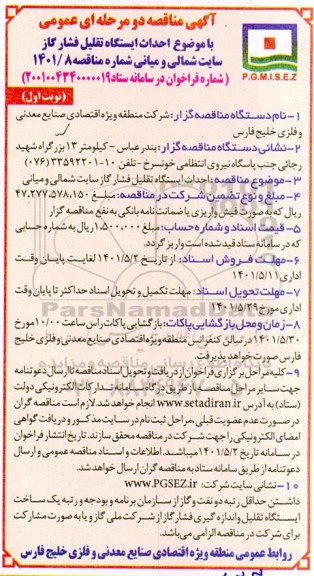 آگهی مناقصه دو مرحله ای عمومی
با موضوع احداث ایستگاه تقلیل فشار گاز
سایت شمالی و میانی شماره مناقصه ۱۴۰۱/۸
(شماره فراخوان در سامانه ستاد ۲۰۰۱۰۰۴۳۴۰۰۰۰۰۱۹)
P.G.M.I.S.E.Z
(نوبت اول)
۱- نام دستگاه مناقصه گزار: شرکت منطقه ویژه اقتصادی صنایع معدنی
و فلزی خلیج فارس
۲- نشانی دستگاه مناقصه گزار: بندرعباس - کیلومتر ۱۳ بزرگراه شهید
رجائی جنب پاسگاه نیروی انتظامی خونسرخ - تلفن ۱۰-۳۳۵۹۲۲۰۱ (۰۷۶)
۳- موضوع مناقصه: احداث ایستگاه تقلیل فشار گاز سایت شمالی و میانی
۴- مبلغ و نوع تضمین شرکت در مناقصه: مبلغ ۴۷.۲۷۷.۵۷۸.۱۵۰
ریال که به صورت فیش واریزی یا ضمانت نامه بانکی به نفع مناقصه گزار
۵- قیمت اسناد و شماره حساب: مبلغ ۱.۵۰۰.۰۰۰ ریال به شماره حسابی
که در سامانه ستاد قید شده است واریز گردد.
۶- مهلت فروش اسناد: از تاریخ ۱۴۰۱/۵/۲ لغایت پایان وقت
اداری ۱۴۰۱/۵/۱۱
۷- مهلت تحویل اسناد: مهلت تکمیل و تحویل اسناد حداکثر تا پایان وقت
اداری مورخ ۱۴۰۱/۵/۲۹
۸- زمان و محل بازگشایی پاکات: بازگشایی پاکات راس ساعت ۱۰/۰۰ مورخ
۱۴۰۱/۵/۳۰ در سالن کنفرانس منطقه ویژه اقتصادی صنایع معدنی و فلزی خلیج
فارس صورت خواهد پذیرفت.
۹- کلیه مراحل برگزاری فراخوان از دریافت و تحویل اسناد مناقصه تا ارسال دعوتنامه
جهت سایر مراحل مناقصه، از طریق درگاه سامانه تدارکات الکترونیکی دولت
(ستاد) به آدرس www.setadiran.ir انجام خواهد شد. لازم است مناقصه گران
در صورت عدم عضویت قبلی، مراحل ثبت نام در سایت مذکور و دریافت گواهی
امضای الکترونیکی را جهت شرکت در مناقصه محقق سازند. تاریخ انتشار فراخوان
در سامانه تاریخ ۱۴۰۱/۵/۲ میباشد. اطلاعات و اسناد مناقصه عمومی و ارسال
دعوتنامه از طریق سامانه ستاد به مناقصه گران ارسال خواهد شد.
۱۰- نشانی سایت شرکت: www.PGSEZ.ir
داشتن حداقل رتبه دو نفت و گاز از سازمان برنامه و بودجه و رتبه یک ساخت
ایستگاه تقلیل و اندازه گیری فشار گاز از شرکت ملی گاز و یا به صورت مشارکت
برای شرکت در مناقصه الزامی می باشد.
روابط عمومی منطقه ویژه اقتصادی صنایع معدنی و فلزی خلیج فارس